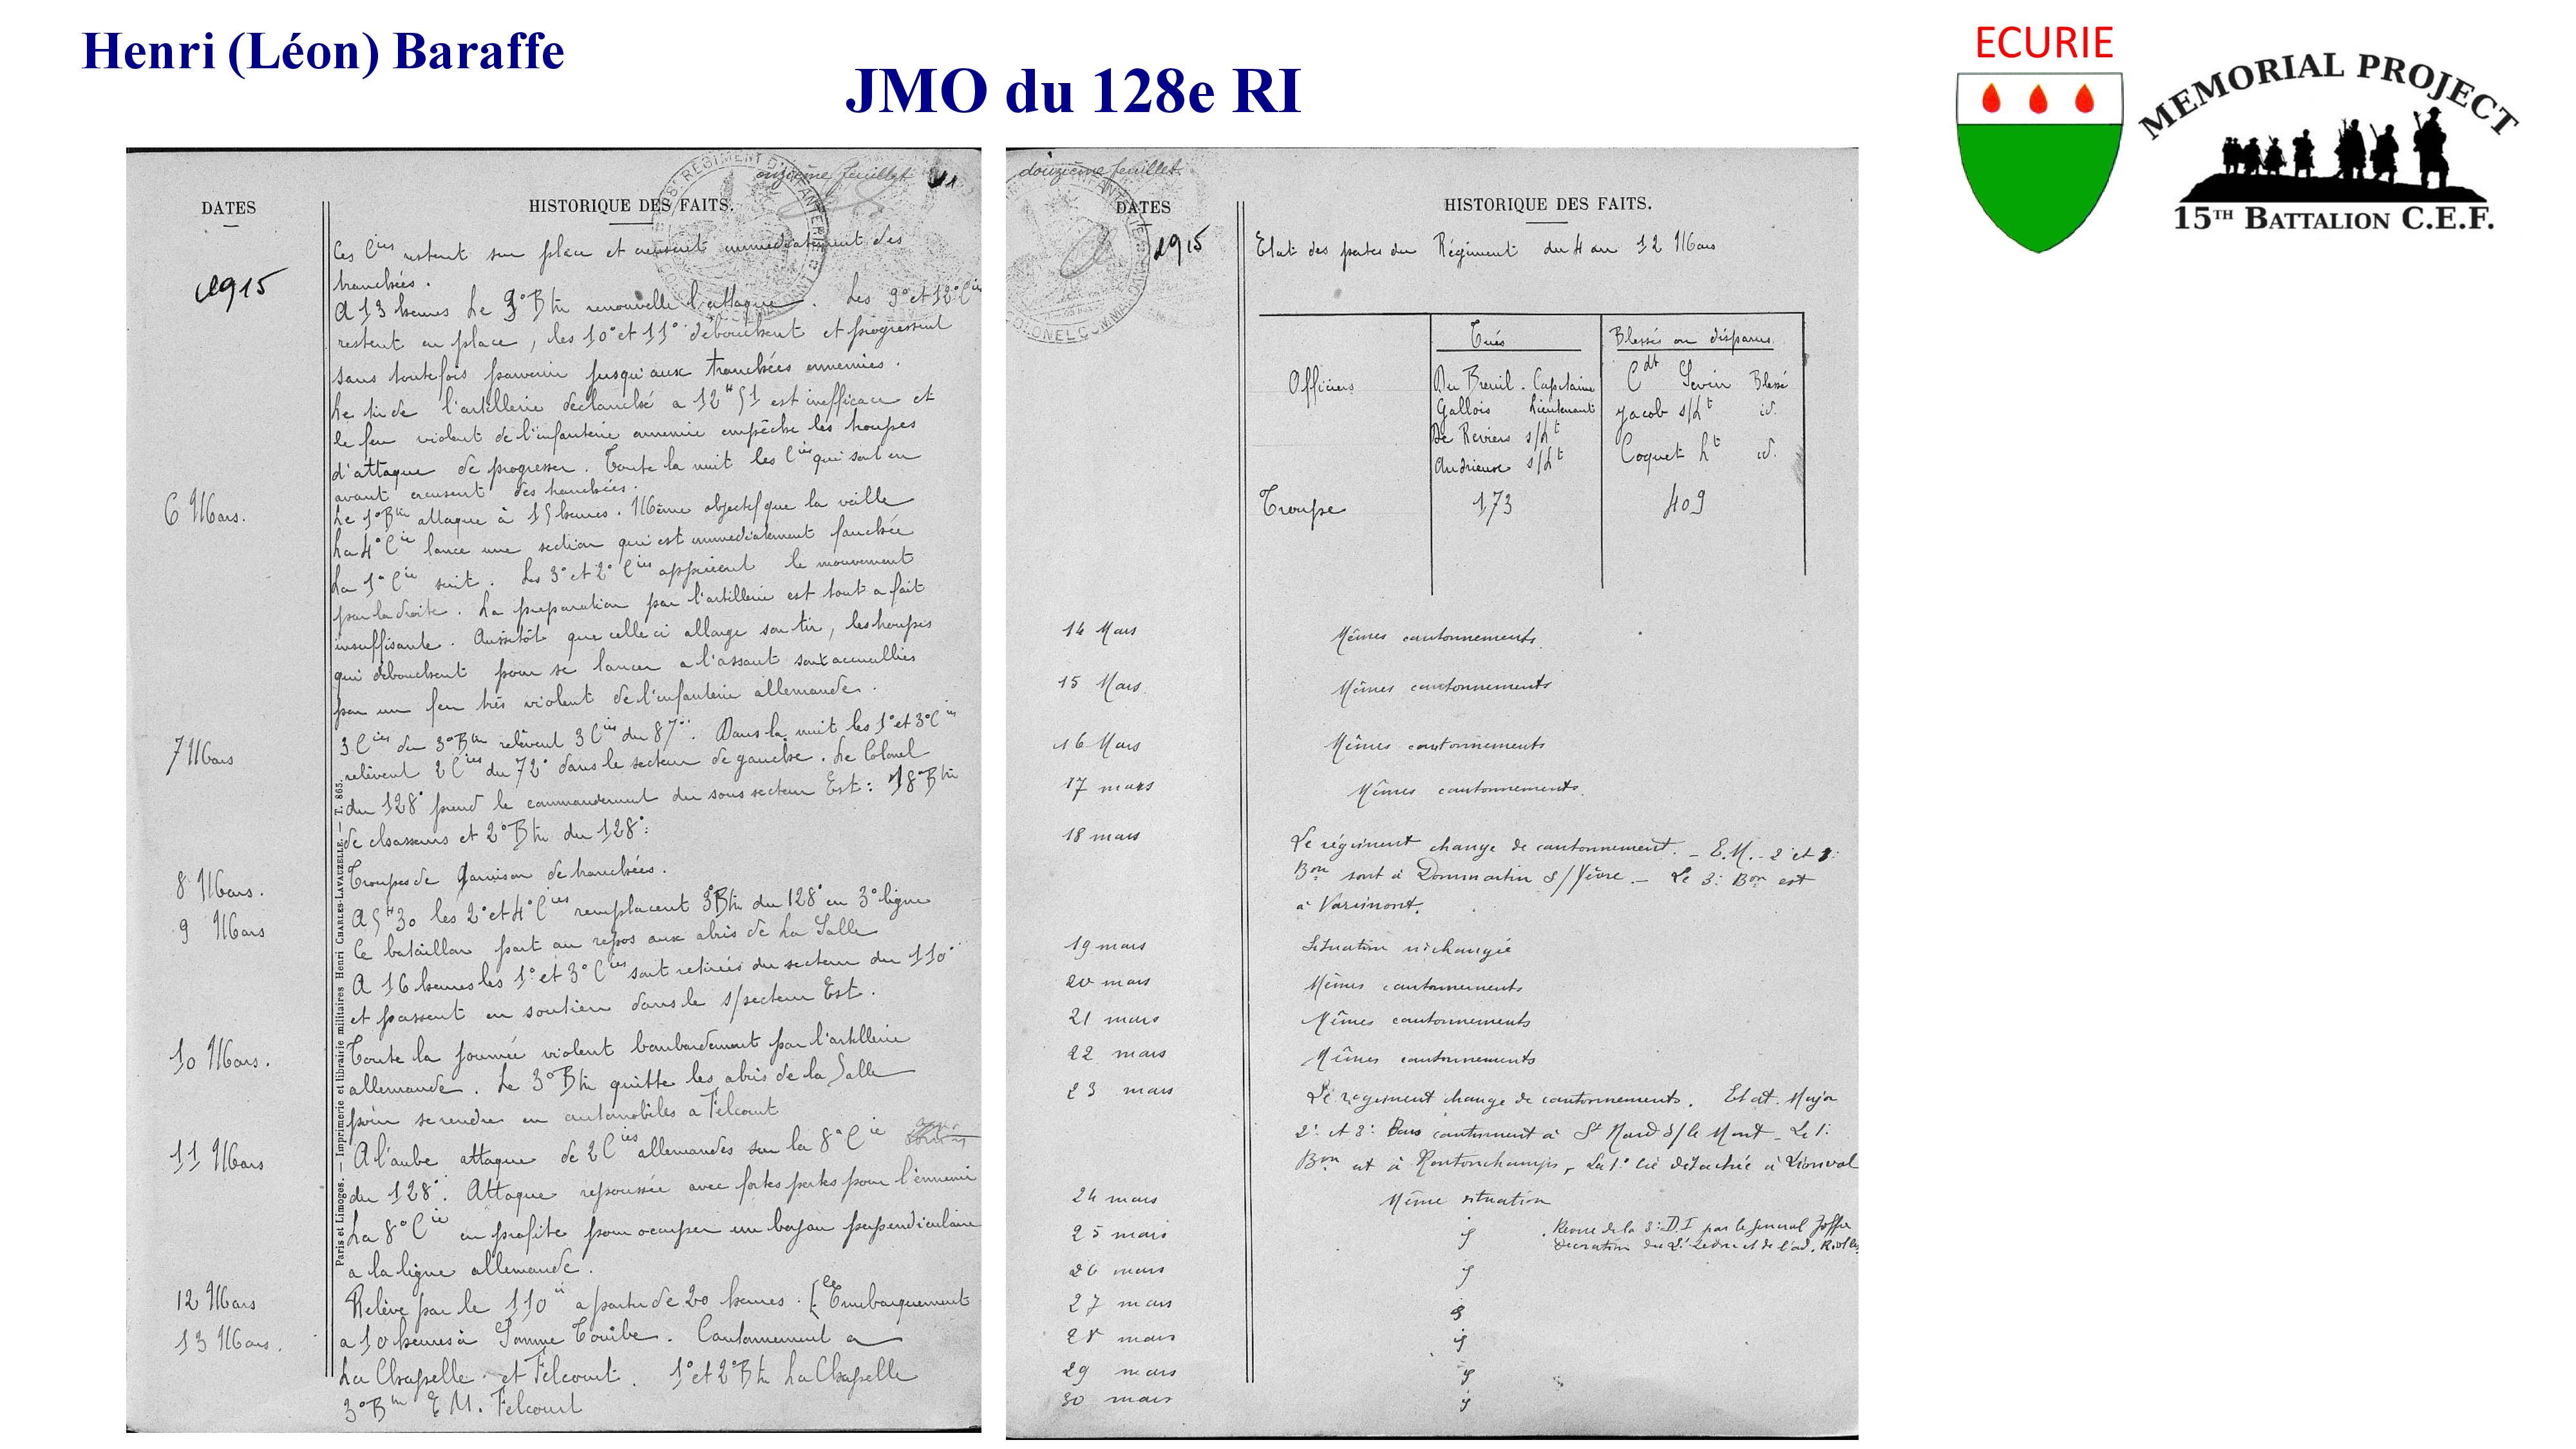 Henri (Léon) Baraffe
JMO du 128e RI
ECURIE
MEMORIAL PROJECT
15TH BATTALION C.E.F.
onzième feuillet
DATES
HISTORIQUE DES FAITS.
1915
Ces Cies restent sur place et creusent immédiatement des
tranchées.
A 13 heures Le 3° Btn renouvelle l'attaque. Les 9° et 12° Cies
restent en place, les 10° et 11° débouchent et progressent
sans toutefois parvenir jusqu'aux tranchées ennemies.
Le tir de l'artillerie déclanché a 12H51 est inefficace et
le feu violent de l'infanterie ennemie empêche les troupes
d'attaque de progresser. Toute la nuit les Cies qui sont en
avant creusent des tranchées.
6 Mars.
Le 1° Btn attaque à 15 heures. Même objectif que la veille
La 4° Cie lance une section qui est immédiatement fauchée
La 1° Cie suit. Les 3° et 2° Cies appuient le mouvement
par la droite. La préparation par l'artillerie est tout a fait
insuffisante. Aussitôt que celle ci allonge son tir, les troupes
qui débouchent pour se lancer a l'assaut sont accueillies
par un feu très violent de l'infanterie allemande.
7 Mars
3 Cies du 3° Btn relèvent 3 Cies du 87°. Dans la nuit les 1° et 3° Cies
relèvent 2 Cies du 72° dans le secteur de gauche. Le Colonel
du 128° prend le commandement du sous secteur Est: 18° Btn
de chasseurs et 2° Btn du 128°.
8 Mars.
Troupes de Garnison de tranchées.
9 Mars
A 5H30 les 2° et 4° Cies remplacent 3° Btn du 128° en 3° ligne
Ce bataillon part au repos aux abris de La Salle
A 16 heures les 1° et 3° Cies sont retirées du secteur du 110°
et passent en soutien dans le s/secteur Est.
10 Mars.
Toute la journée violent bombardement par l'artillerie
allemande. Le 3° Btn quitte les abris de la Salle
pour se rendre en automobiles a Felcourt
11 Mars
A l'aube attaque de 2 Cies allemandes sur la 8° Cie
du 128°. Attaque repoussée avec fortes pertes pour l'ennemi
La 8° Cie en profite pour occuper un boyau perpendiculaire
a la ligne allemande.
12 Mars
Relève par le 110° a partir de 20 heures. Embarquement
13 Mars.
a 10 heures à Somme Tourbe. Cantonnement a
La Chapelle et Felcourt. 1° et 2° Btn La Chapelle
3° Btn E M. Felcourt
Paris et Limoges. — Imprimerie et librairie militaires Henri CHARLES-LAVAUZELLE. — T. 865.
douzième feuillet.
DATES
HISTORIQUE DES FAITS.
1915
Etat des pertes du Régiment du 4 au 12 Mars
Tués
Blessés ou disparus.
Officiers
Du Breuil. Capitaine
Cdt Sevin Blessé
Gallois Lieutenant
Jacob s/Lt id.
De Reviers s/Lt
Coquet Lt id.
Andrieux s/Lt
Troupe
173
409
14 Mars
Mêmes cantonnements.
15 Mars
Mêmes cantonnements
16 Mars
Mêmes cantonnements
17 mars
Mêmes cantonnements.
18 mars
Le régiment change de cantonnement. — E.M. - 2 et 1:
Bon sont à Dommartin s/Yèvre. — Le 3: Bon est
à Varimont.
19 mars
Situation inchangée
20 mars
Mêmes cantonnements
21 mars
Mêmes cantonnements
22 mars
Mêmes cantonnements
23 mars
Le régiment change de cantonnements. Etat. Major
2: et 3: Bons cantonnent à St Mard s/le Mont - Le 1:
Bon est à Rontonchamps, La 1° Cie détachée à
24 mars
Même situation
25 mars
Revue de la 3: D.I par le général Joffre
26 mars
27 mars
28 mars
29 mars
30 mars